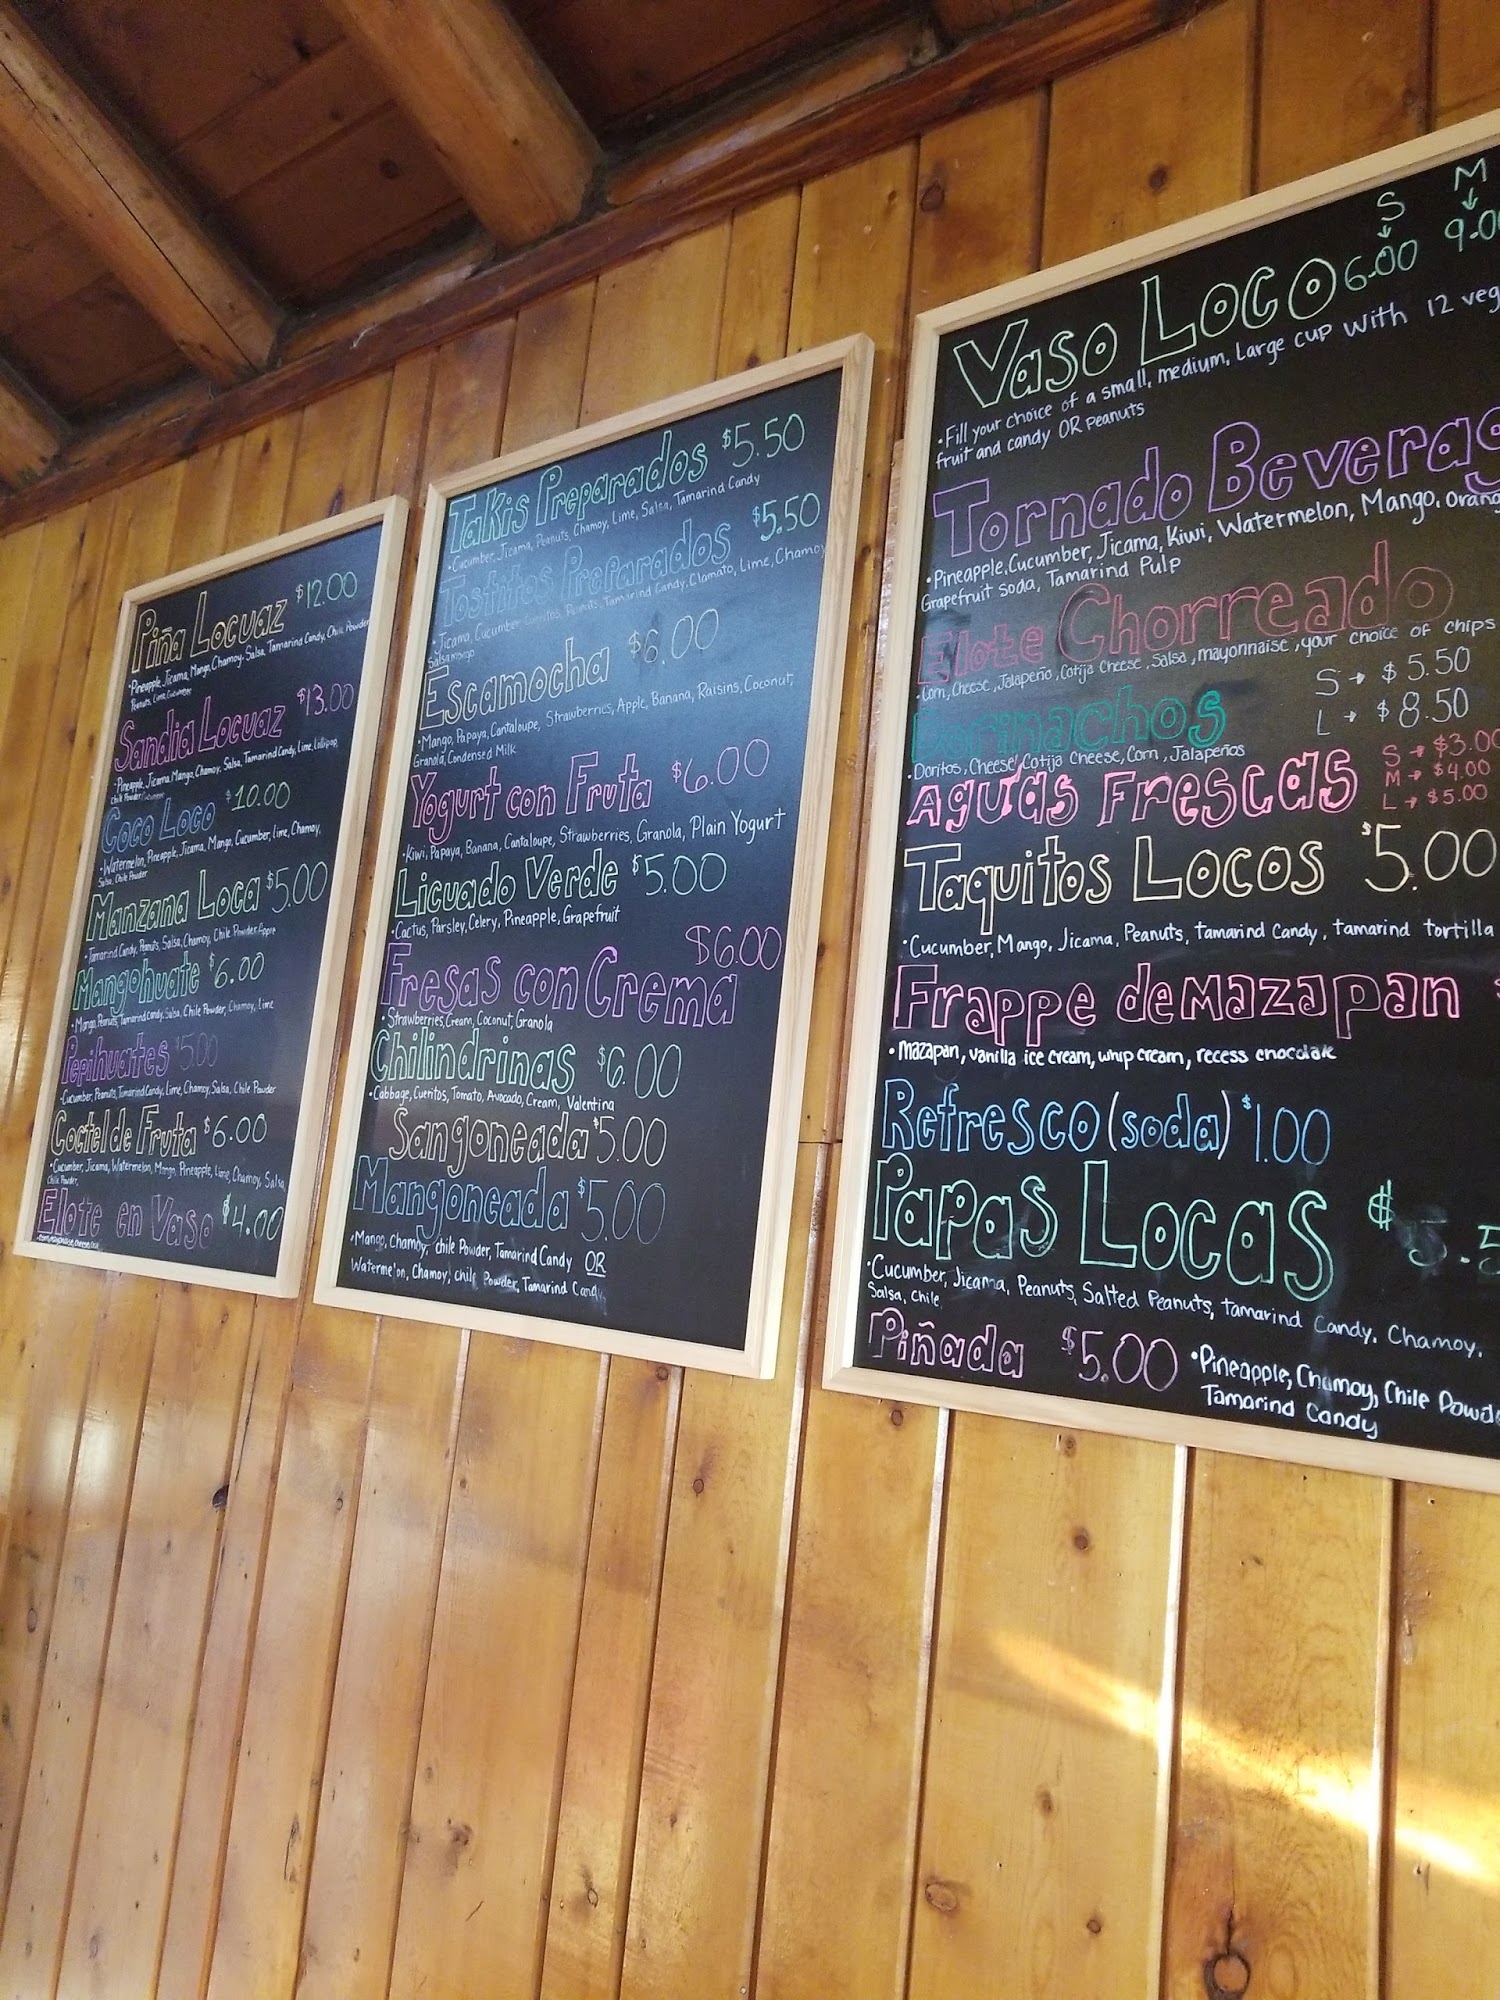 Piña Locuaz $12.00
• Pineapple, Jicama, Mango, Chamoy, Salsa, Tamarind Candy, Chile Powder
Peanuts, Lime, Cucumber
Sandia Locuaz $13.00
• Pineapple, Jicama, Mango, Chamoy, Salsa, Tamarind Candy, Lime, Lollipop,
Chile Powder, Cucumber
Coco Loco $10.00
• Watermelon, Pineapple, Jicama, Mango, Cucumber, Lime, Chamoy,
Salsa, Chile Powder
Manzana Loca $5.00
• Tamarind Candy, Peanuts, Salsa, Chamoy, Chile Powder, Apple
Mangohuate $6.00
• Mango, Peanuts, Tamarind Candy, Salsa, Chile Powder, Chamoy, Lime
Pepihuates $5.00
• Cucumber, Peanuts, Tamarind Candy, Lime, Chamoy, Salsa, Chile Powder
Coctel de Fruta $6.00
• Cucumber, Jicama, Watermelon, Mango, Pineapple, Lime, Chamoy, Salsa,
Chile Powder,
Elote en Vaso $4.00
Takis Preparados $5.50
• Cucumber, Jicama, Peanuts, Chamoy, Lime, Salsa, Tamarind Candy
Tostitos Preparados $5.50
• Jicama, Cucumber, Peanuts, Tamarind Candy, Clamato, Lime, Chamoy
Escamocha $6.00
• Mango, Papaya, Cantaloupe, Strawberries, Apple, Banana, Raisins, Coconut,
Granola, Condensed Milk
Yogurt con Fruta $6.00
• Kiwi, Papaya, Banana, Cantaloupe, Strawberries, Granola, Plain Yogurt
Licuado Verde $5.00
• Cactus, Parsley, Celery, Pineapple, Grapefruit
Fresas con Crema $6.00
• Strawberries, Cream, Coconut, Granola
Chilindrinas $6.00
• Cabbage, Cueritos, Tomato, Avocado, Cream, Valentina
Sangoneada $5.00
Mangoneada $5.00
• Mango, Chamoy, chile Powder, Tamarind Candy OR
Watermelon, Chamoy, chile Powder, Tamarind Candy
S M
Vaso Loco 6.00 9.00
• Fill your choice of a small, medium, large cup with 12 veg
fruit and candy OR peanuts
Tornado Beverag
• Pineapple, Cucumber, Jicama, Kiwi, Watermelon, Mango, Orang
Grapefruit soda, Tamarind Pulp
Elote Chorreado
• Corn, Cheese, Jalapeño, Cotija Cheese, Salsa, mayonnaise, your choice of chips
S → $5.50
Dorinachos L → $8.50
• Doritos, Cheese, Cotija Cheese, Corn, Jalapeños
Aguas Frescas S → $3.00
M → $4.00
L → $5.00
Taquitos Locos $5.00
• Cucumber, Mango, Jicama, Peanuts, tamarind Candy, tamarind tortilla
Frappe de Mazapan
• mazapan, vanilla ice cream, whip cream, recess chocolate
Refresco (soda) $1.00
Papas Locas $5.5
• Cucumber, Jicama, Peanuts, Salted Peanuts, tamarind Candy, Chamoy,
Salsa, Chile,
Piñada $5.00 • Pineapple, Chamoy, Chile Powde
Tamarind Candy